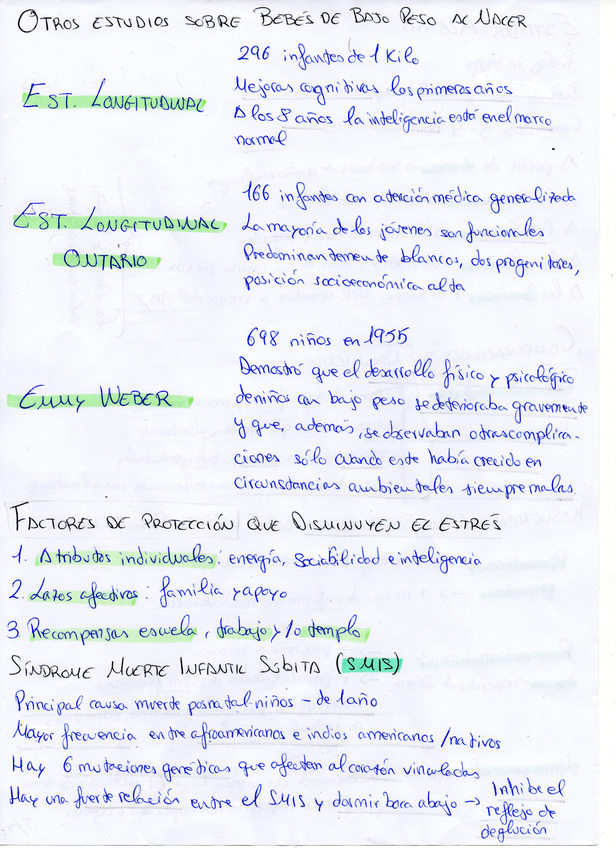 OTROS ESTUDIOS SOBRE BEBÉS DE BAJO PESO AL NACER
296 infantes de 1 Kilo
EST. LONGITUDINAL
Mejoras cognitivas los primeros años
A los 8 años la inteligencia está en el marco
normal
166 infantes con atención médica generalizada
EST. LONGITUDINAL
ONTARIO
La mayoría de los jóvenes son funcionales
Predominantemente blancos, dos progenitores,
posición socioeconómica alta
698 niños en 1955
EMMY WEBER
Demostró que el desarrollo físico y psicológico
de niños con bajo peso se deterioraba gravemente
y que, además, se observaban otras complica-
ciones sólo cuando este había crecido en
circunstancias ambientales siempre malas.
FACTORES DE PROTECCIÓN QUE DISMINUYEN EL ESTRÉS
1. Atributos individuales: energía, sociabilidad e inteligencia
2. Lazos afectivos: familia y apoyo
3. Recompensas escuela, trabajo y/o templo
SÍNDROME MUERTE INFANTIL SÚBITA (SMIS)
Principal causa muerte posnatal niños - de 1 año
Mayor frecuencia entre afroamericanos e indios americanos/nativos
Hay 6 mutaciones genéticas que afectan al corazón vinculadas
Hay una fuerte relación entre el SMIS y dormir boca abajo → Inhibe el
reflejo de
deglución